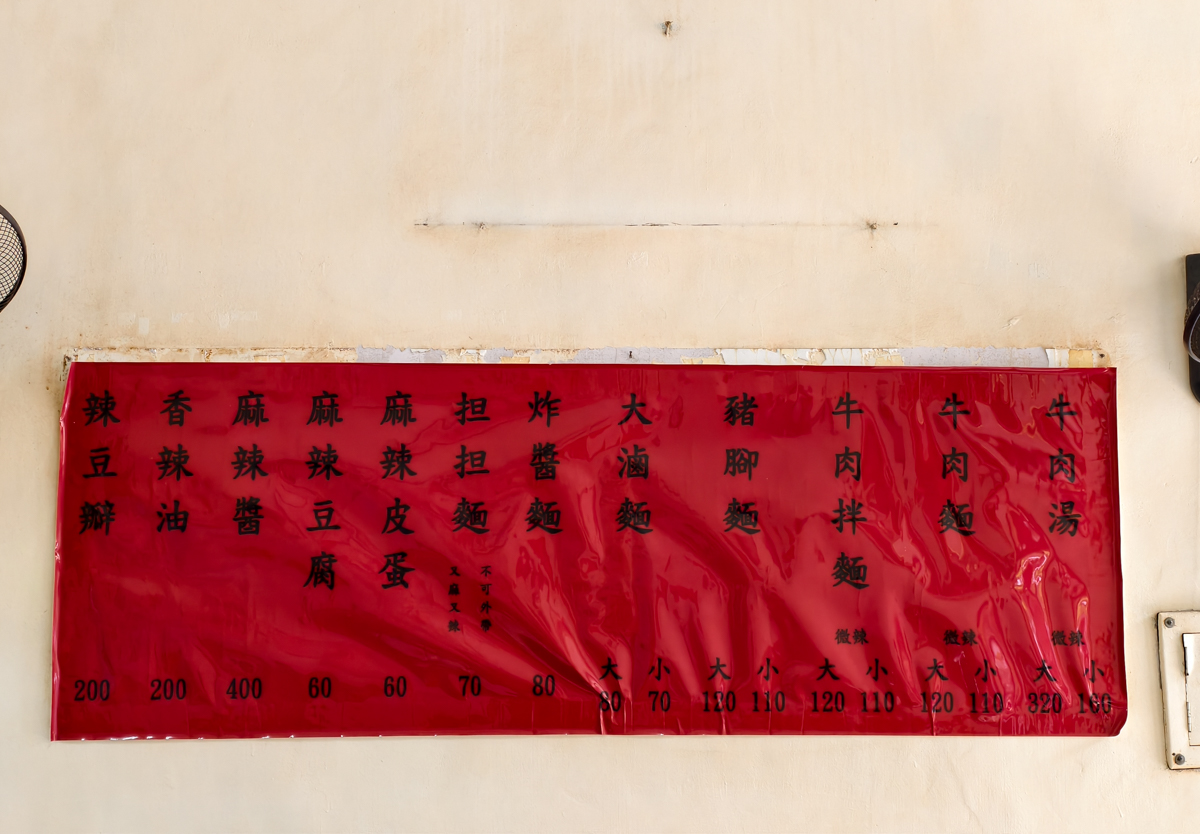 牛肉湯
微辣
大 小
320 160
牛肉麵
微辣
大 小
120 110
牛肉拌麵
微辣
大 小
120 110
豬腳麵
大 小
120 110
大滷麵
大 小
80 70
炸醬麵
80
担担麵
不可外帶
又麻又辣
70
麻辣皮蛋
60
麻辣豆腐
60
麻辣醬
400
香辣油
200
辣豆瓣
200